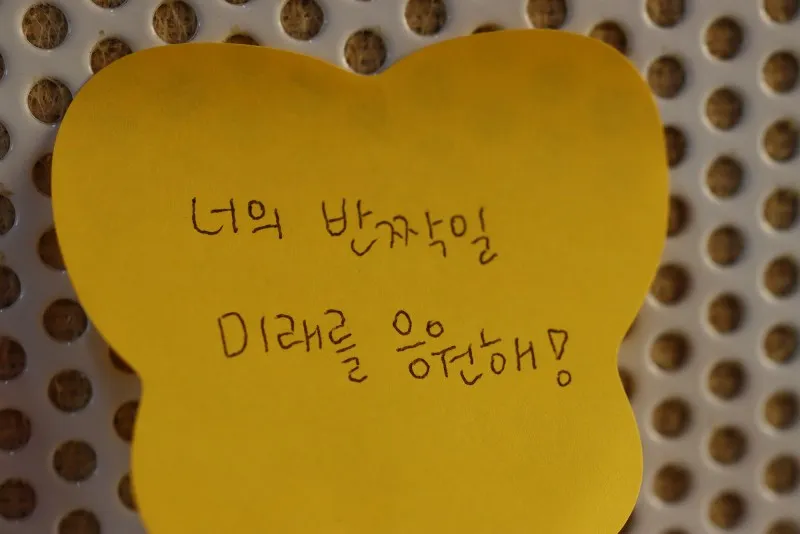 너의 반짝일
미래를 응원해!